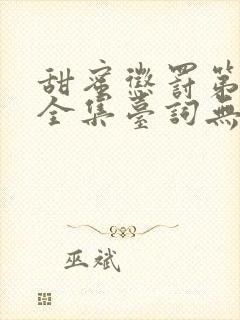 甜蜜懲罰第
全集臺詞無
巫斌